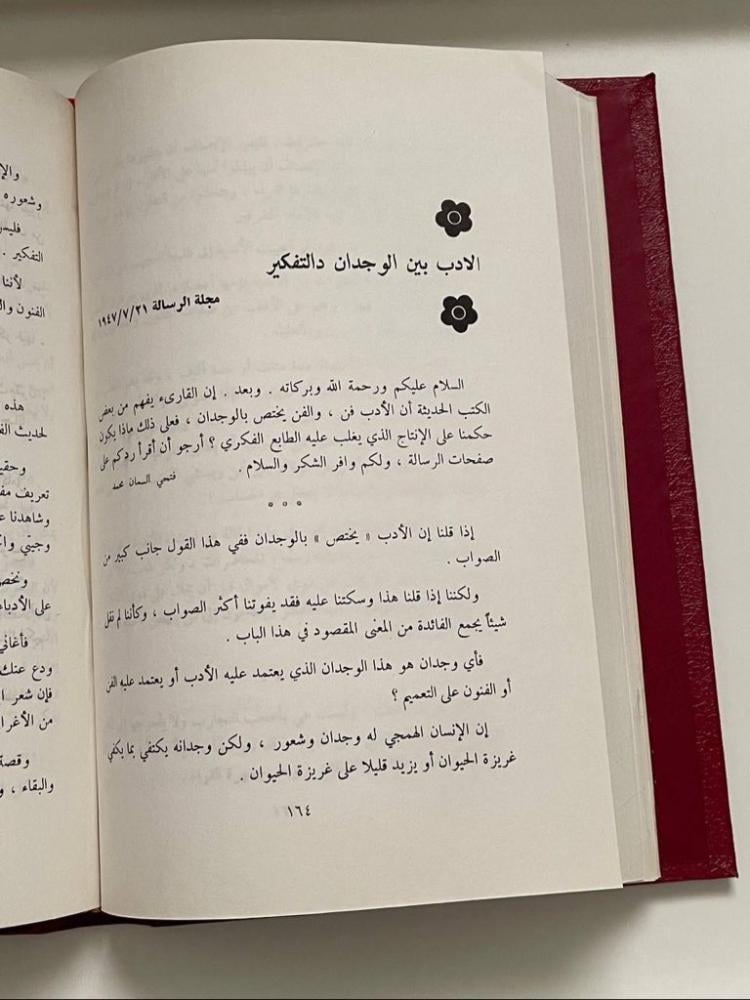 الادب بين الوجدان دالتفكير
مجلة الرسالة ١٩٤٧/٧/٢١
السلام عليكم ورحمة الله وبركاته . وبعد . إن القارىء يفهم من بعض
الكتب الحديثة أن الأدب فن ، والفن يختص بالوجدان ، فعلى ذلك ماذا يكون
حكمنا على الإنتاج الذي يغلب عليه الطابع الفكري ؟ أرجو أن أقرأ ردكم على
صفحات الرسالة ، ولكم وافر الشكر والسلام .
فتحي السمان محمد
إذا قلنا إن الأدب « يختص » بالوجدان ففي هذا القول جانب كبير من
الصواب .
ولكننا إذا قلنا هذا وسكتنا عليه فقد يفوتنا أكثر الصواب ، وكأننا لم نقل
شيئاً يجمع الفائدة من المعنى المقصود في هذا الباب .
فأي وجدان هو هذا الوجدان الذي يعتمد عليه الأدب أو يعتمد عليه الفن
أو الفنون على التعميم ؟
إن الإنسان الهمجي له وجدان وشعور ، ولكن وجدانه يكتفي بما يكفي
غريزة الحيوان أو يزيد قليلا على غريزة الحيوان .
١٦٤
وشعوره
التفكير .
لأننا
الفنون
هذه
لحديث
تعريف
وشاهدنا
على
ودع عنك
فإن شعر
من
وقصة
والبقاء ،